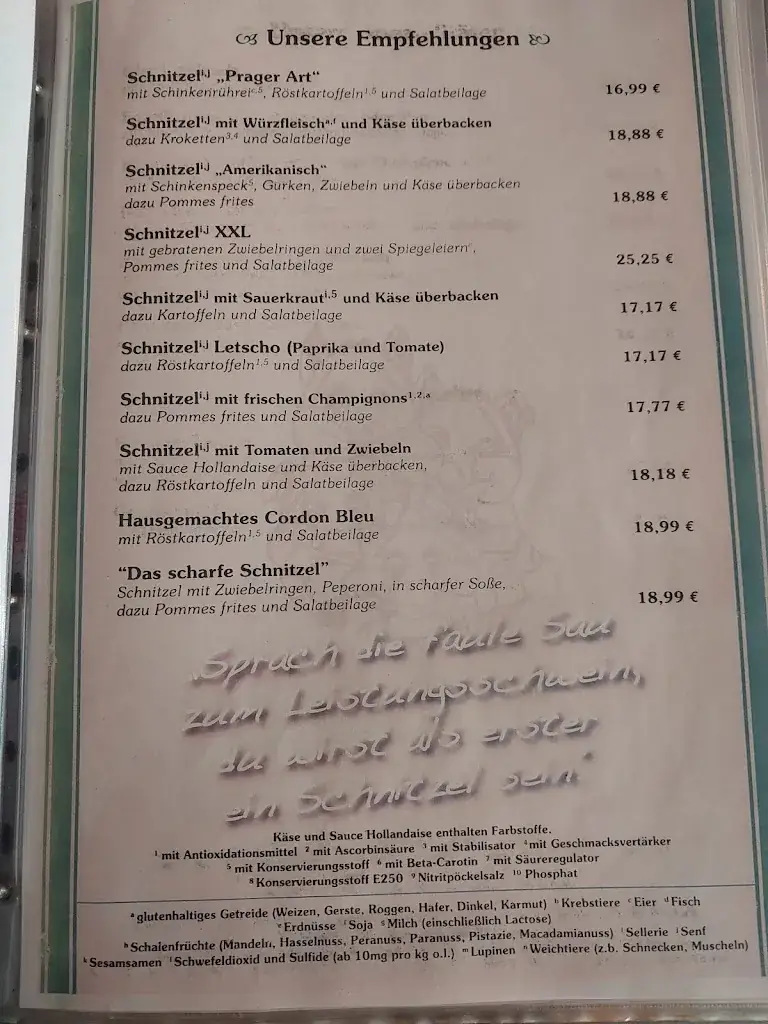 Unsere Empfehlungen
Schnitzelⁱ,ʲ „Prager Art“
mit Schinkenrühreiᶜ,⁵, Röstkartoffeln¹,⁵ und Salatbeilage 16,99 €
Schnitzelⁱ,ʲ mit Würzfleischᵃ,ᶠ und Käse überbacken
dazu Kroketten³,⁴ und Salatbeilage 18,88 €
Schnitzelⁱ,ʲ „Amerikanisch“
mit Schinkenspeck⁵, Gurken, Zwiebeln und Käse überbacken
dazu Pommes frites 18,88 €
Schnitzelⁱ,ʲ XXL
mit gebratenen Zwiebelringen und zwei Spiegeleiern,
Pommes frites und Salatbeilage 25,25 €
Schnitzelⁱ,ʲ mit Sauerkrautⁱ,⁵ und Käse überbacken
dazu Kartoffeln und Salatbeilage 17,17 €
Schnitzelⁱ,ʲ Letscho (Paprika und Tomate)
dazu Röstkartoffeln¹,⁵ und Salatbeilage 17,17 €
Schnitzelⁱ,ʲ mit frischen Champignons¹,²,ᵃ
dazu Pommes frites und Salatbeilage 17,77 €
Schnitzelⁱ,ʲ mit Tomaten und Zwiebeln
mit Sauce Hollandaise und Käse überbacken,
dazu Röstkartoffeln und Salatbeilage 18,18 €
Hausgemachtes Cordon Bleu
mit Röstkartoffeln¹,⁵ und Salatbeilage 18,99 €
“Das scharfe Schnitzel”
Schnitzel mit Zwiebelringen, Peperoni, in scharfer Soße,
dazu Pommes frites und Salatbeilage 18,99 €
„Sprach die faule Sau
zum Leistungsschwein,
du wirst als erster
ein Schnitzel sein“
Käse und Sauce Hollandaise enthalten Farbstoffe.
¹ mit Antioxidationsmittel ² mit Ascorbinsäure ³ mit Stabilisator ⁴ mit Geschmacksvertärker
⁵ mit Konservierungsstoff ⁶ mit Beta-Carotin ⁷ mit Säureregulator
⁸ Konservierungsstoff E250 ⁹ Nitritpöckelsalz ¹⁰ Phosphat
ᵃ glutenhaltiges Getreide (Weizen, Gerste, Roggen, Hafer, Dinkel, Karmut) ᵇ Krebstiere ᶜ Eier ᵈ Fisch
ᵉ Erdnüsse ᶠ Soja ᵍ Milch (einschließlich Lactose)
ʰ Schalenfrüchte (Mandeln, Hasselnuss, Peranuss, Paranuss, Pistazie, Macadamianuss) ⁱ Sellerie ʲ Senf
ᵏ Sesamsamen ˡ Schwefeldioxid und Sulfide (ab 10mg pro kg o.l.) ᵐ Lupinen ⁿ Weichtiere (z.b. Schnecken, Muscheln)